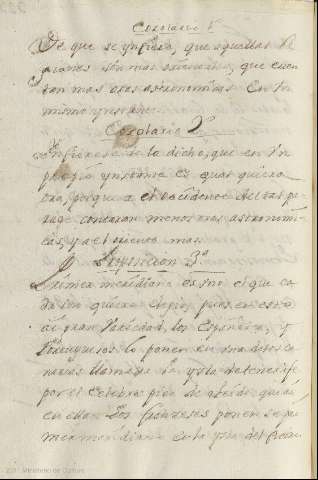 Corolario 1º
De que se ynfiere, que aquellas Re
giones son mas orientales, que cuen
tan mas oras astronomicas. En un
mismo ynstante.
Corolario 2º
Ynfierese de lo dicho, que en un
propio ynstante es qualquiera
ora, porque a el occidente del tal pa
rage contaran menos oras astronomi
cas, y a el oriente mas.
Difinicion 3ª
Primer meridiano es uno el que ca
da un quiera elegir, pues en esto
ai gran variedad, los Españoles, y
Portugueses lo ponen en una de las ca
narias llamada la ysla de tenerife
por el celebre pico de
en ellas. Los franceses ponen su pri
mer meridiano en la ysla del fierro
Ministerio de Cultura